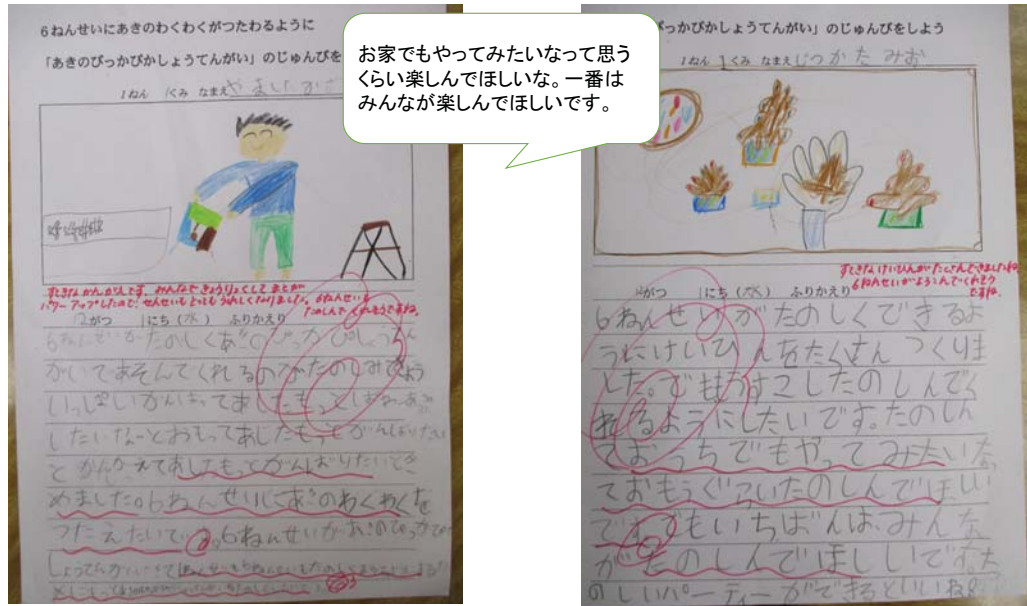 6ねんせいにあきのわくわくがつたわるように
「あきのぴっかぴかしょうてんがい」のじゅんびを
1ねん 1くみ なまえ やました
すてきなかんがえです。みんなできょうりょくして
パワーアップしたので、せんせいもとってもうれしくなりました。6ねんせいも
たのしんでくれそうですね。
12がつ 1にち（水） ふりかえり
6ねんせいがたのしくあきのぴっかぴかしょうてん
がいであそんでくれるのがたのしみで
いっぱいがんばってあしたもっと
したいなーとおもってあしたもっとがんばりたい
とかんがえてあしたもっとがんばりたいとき
めました。6ねんせいにあきのわくわくを
つたえたいです。6ねんせいがあきのぴっかぴか
しょうてんがい
お家でもやってみたいなって思う
くらい楽しんでほしいな。一番は
みんなが楽しんでほしいです。
ぴっかぴかしょうてんがい」のじゅんびをしよう
1ねん 1くみ なまえ じつかた みお
すてきなけいひんがたくさんできましたね。
6ねんせいがよろこんでくれそう
ですね。
12がつ 1にち（水） ふりかえり
6ねんせいがたのしくできるよ
うにけいひんをたくさんつくりま
した。でももうすこしたのしんでく
れるようにしたいです。たのしん
でおうちでもやってみたいな
ておもうぐらいたのしんでほしい
です。でもいちばんは、みんな
がたのしんでほしいです。た
のしいパーティーができるといいね